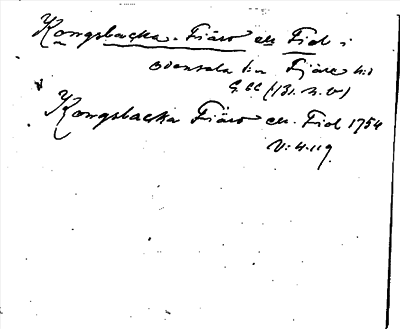 Kongsbacka. Fiäro el. Fid i
Odensala Fjäre
Kongsbacka Fiäro el. Fid 1754
V: 4.119